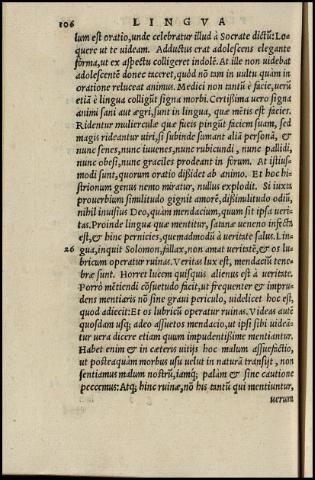 106 LINGVA
lum est oratio, unde celebratur illud à Socrate dictũ: Lo⸗
quere ut te uideam. Adductus erat adolescens elegante
forma, ut ex aspectu colligeret indolẽ. At ille non uidebat
adolescentẽ donec taceret, quòd nõ tam in uultu quàm in
oratione reluceat animus. Medici non tantũ è facie, verũ
etiã è lingua colligũt signa morbi. Certissima uero signa
animi sani aut ægri, sunt in lingua, quæ mẽtis est facies.
Ridentur mulierculæ quæ fucis pingũt faciem suam, sed
magis rideantur uiri, si subinde sumant aliã personã, &
nunc senes, nunc iuuenes, nunc rubicundi, nunc pallidi,
nunc obesi, nunc graciles prodeant in forum. At istius⸗
modi sunt, quorum oratio dissidet ab animo. Et hoc hi⸗
strionum genus nemo miratur, nullus explodit. Si iuxta
prouerbium similitudo gignit amorẽ, dissimilitudo odiũ,
nihil inuisius Deo, quàm mendacium, quum sit ipsa ueri⸗
tas. Proinde lingua quæ mentitur, satanæ ueneno infecta
est, & hinc pernicies, quemadmodũ à ueritate salus. Lin⸗
26 gua, inquit Solomon, fallax, non amat veritatẽ, & os lu⸗
bricum operatur ruinas. Veritas lux est, mendaciũ tene⸗
bræ sunt. Horret lucem quisquis alienus est à ueritate.
Porrò mẽtiendi cõsuetudo facit, ut frequenter & impru⸗
dens mentiaris nõ sine graui periculo, uidelicet hoc est,
quod adiecit: Et os lubricũ operatur ruinas. Videas autẽ
quosdam usq; adeo assuetos mendacio, ut ipsi sibi uideã⸗
tur uera dicere etiam quum impudentissime mentiantur.
Habet enim & in cæteris uitijs hoc malum assuefactio,
ut posteaquàm morbus usu uelut in naturã transijt, non
sentiamus malum nostrũ, iamq; palàm & sine cautione
peccemus: Atq; hinc ruinæ, nõ his tantũ qui mentiuntur,
uerum